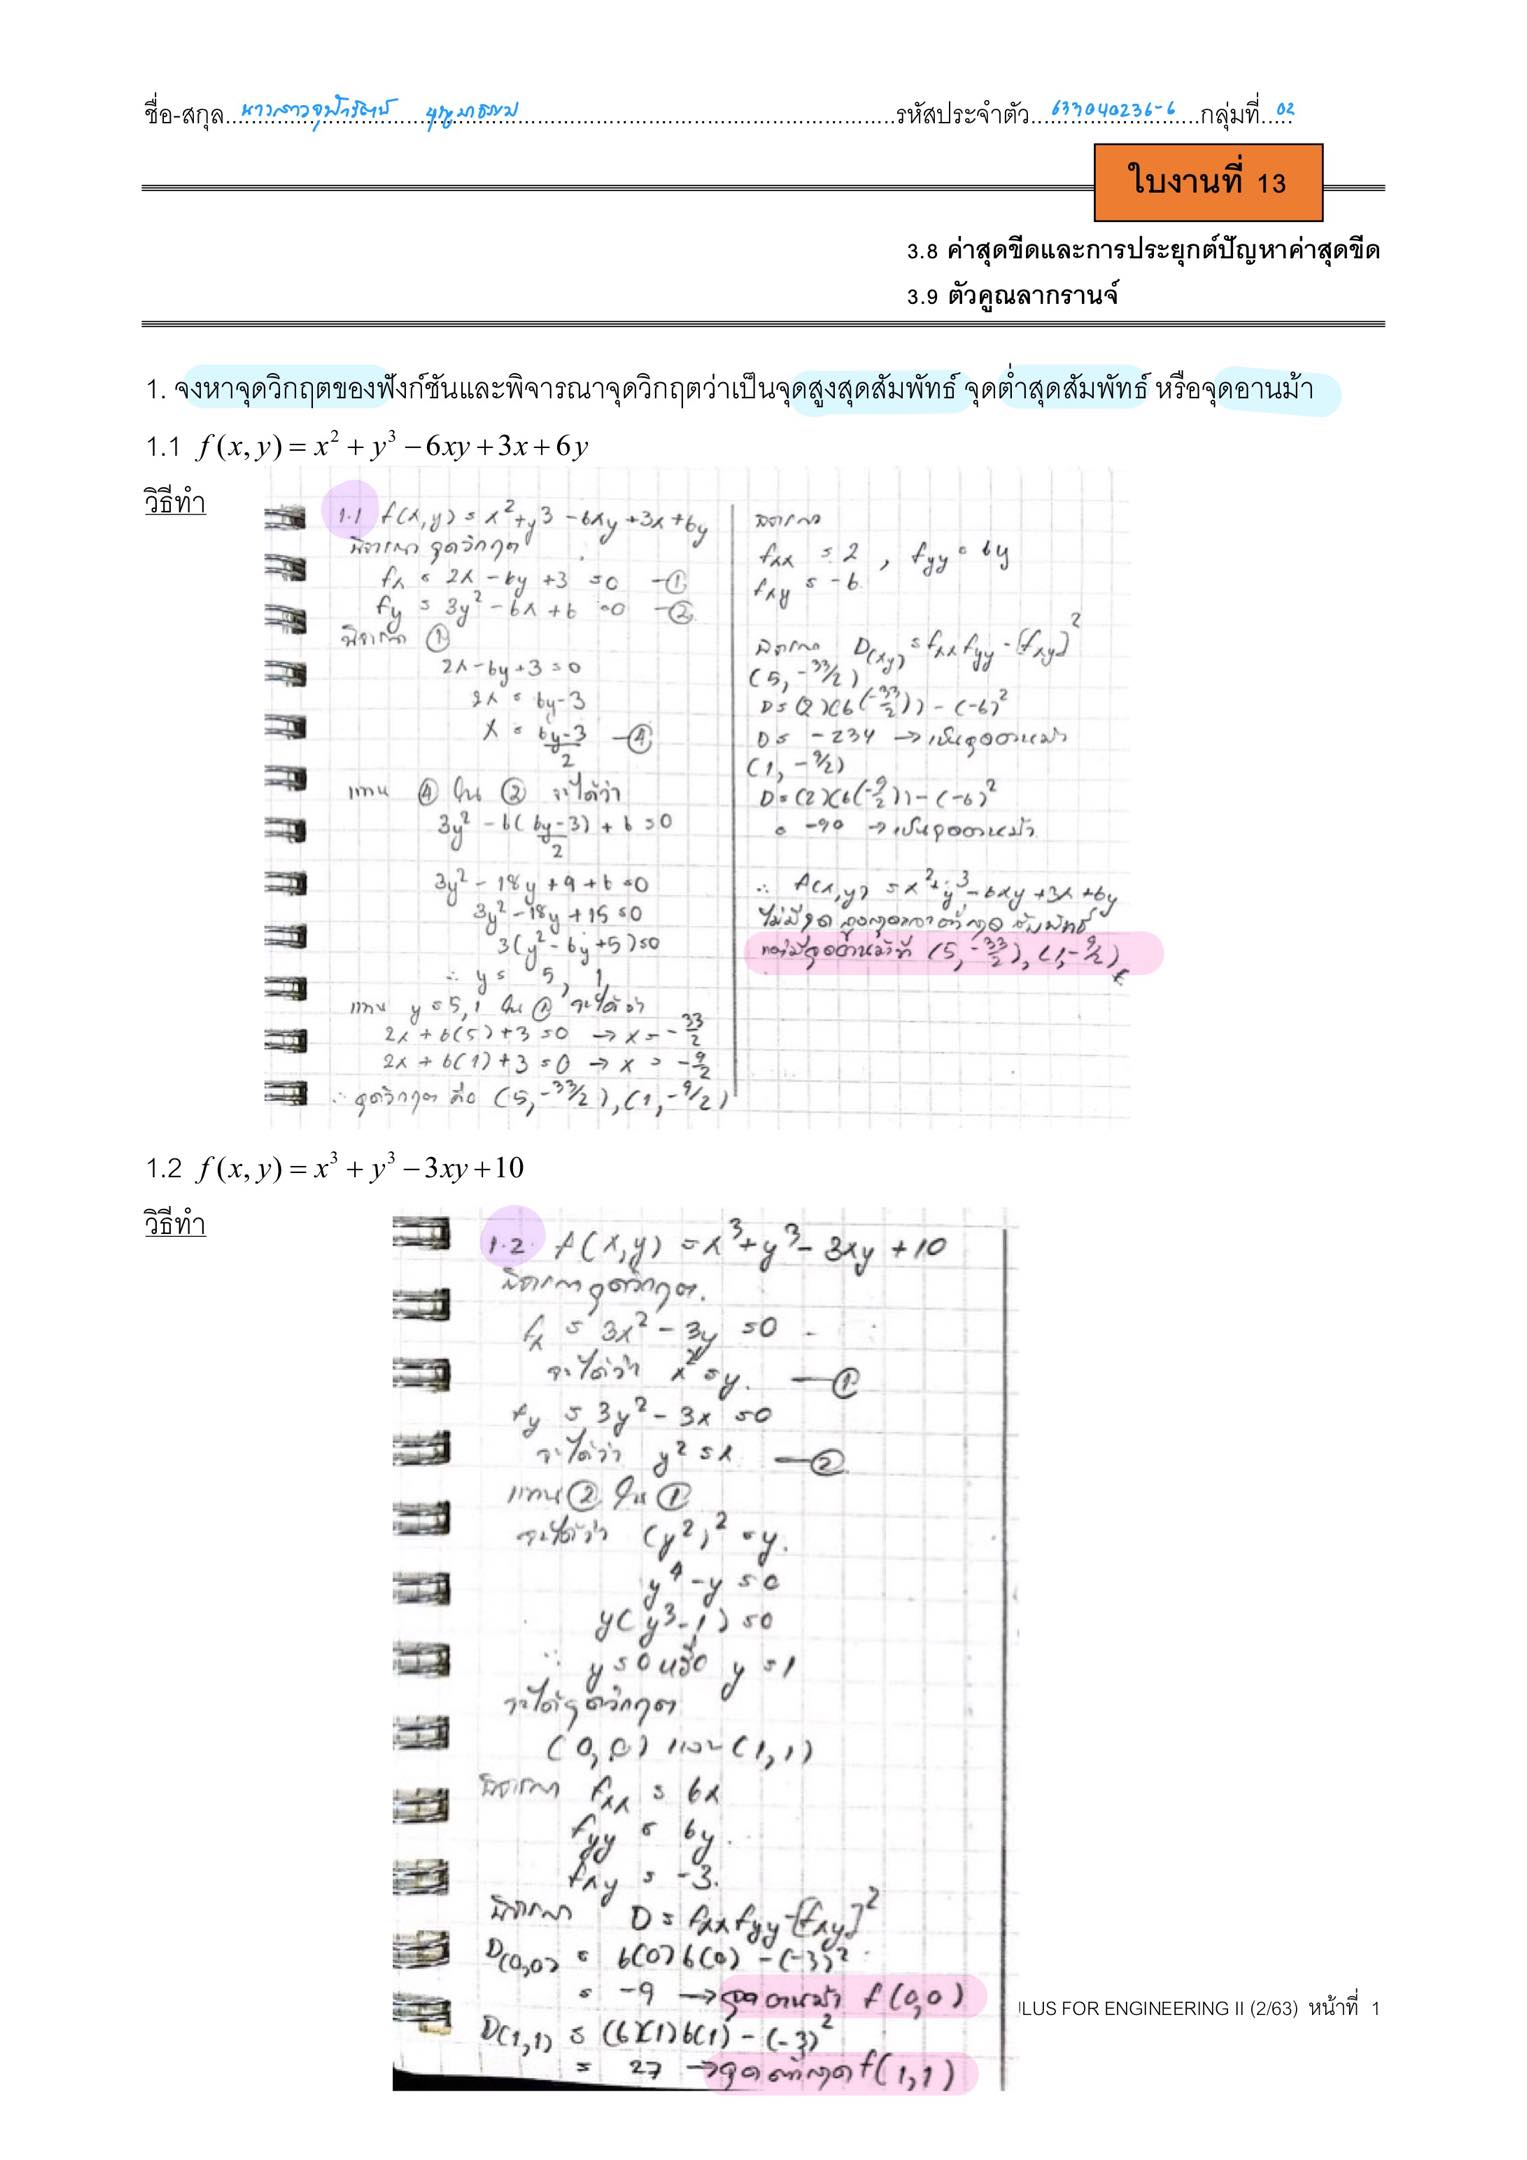 ชื่อ-สกุล นางสาวจุฬารัตน์ รหัสประจำตัว 633040236-6 กลุ่มที่ 02
ใบงานที่ 13
3.8 ค่าสุดขีดและการประยุกต์ปัญหาค่าสุดขีด
3.9 ตัวคูณลากรานจ์
1. จงหาจุดวิกฤตของฟังก์ชันและพิจารณาจุดวิกฤตว่าเป็นจุดสูงสุดสัมพัทธ์ จุดต่ำสุดสัมพัทธ์ หรือจุดอานม้า
1.1 f(x, y) = x² + y³ − 6xy + 3x + 6y
วิธีทำ
1.1 f(x,y) = x²+y3 − 6xy +3x+6y
พิจารณา จุดวิกฤต
fx = 2x − 6y +3 = 0 —①
fy = 3y² − 6x + 6 = 0 —②
พิจารณา ①
2x − 6y + 3 = 0
2x = 6y − 3
x = (6y−3)/2 —④
แทน ④ ใน ② จะได้ว่า
3y² − 6((6y−3)/2) + 6 = 0
3y² − 18y + 9 + 6 = 0
3y² − 18y + 15 = 0
3(y² − 6y + 5) = 0
∴ y = 5, 1
แทน y = 5, 1 ใน ① จะได้ว่า
2x + 6(5) + 3 = 0 → x = −33/2
2x + 6(1) + 3 = 0 → x = −9/2
∴ จุดวิกฤต คือ (5, −33/2), (1, −9/2)
พิจารณา
fxx = 2 , fyy = 6y
fxy = −6
พิจารณา D(xy) = fxx fyy − [fxy]²
(5, −33/2)
D = (2)(6(−33/2)) − (−6)²
D = −234 → เป็นจุดอานม้า
(1, −9/2)
D = (2)(6(−9/2)) − (−6)²
= −90 → เป็นจุดอานม้า
∴ f(x,y) = x²+y³ − 6xy + 3x + 6y
ไม่มีจุด สูงสุดและต่ำสุด สัมพัทธ์
แต่มีจุดอานม้าที่ (5, −33/2), (1, −9/2)
1.2 f(x, y) = x³ + y³ − 3xy + 10
วิธีทำ
1.2. f(x,y) = x³+y³ − 3xy + 10
พิจารณาจุดวิกฤต.
fx = 3x² − 3y = 0
จะได้ว่า x² = y. —①
fy = 3y² − 3x = 0
จะได้ว่า y² = x —②
แทน ② ใน ①
จะได้ว่า (y²)² = y.
y⁴ − y = 0
y(y³ − 1) = 0
∴ y = 0 หรือ y = 1
จะได้จุดวิกฤต
(0,0) และ (1,1)
พิจารณา fxx = 6x
fyy = 6y.
fxy = −3.
พิจารณา D = fxx fyy − [fxy]²
D(0,0) = 6(0)6(0) − (−3)²
= −9 → จุดอานม้า f(0,0)
D(1,1) = (6)(1)6(1) − (−3)²
= 27 → จุดต่ำสุด f(1,1)
ULUS FOR ENGINEERING II (2/63) หน้าที่ 1